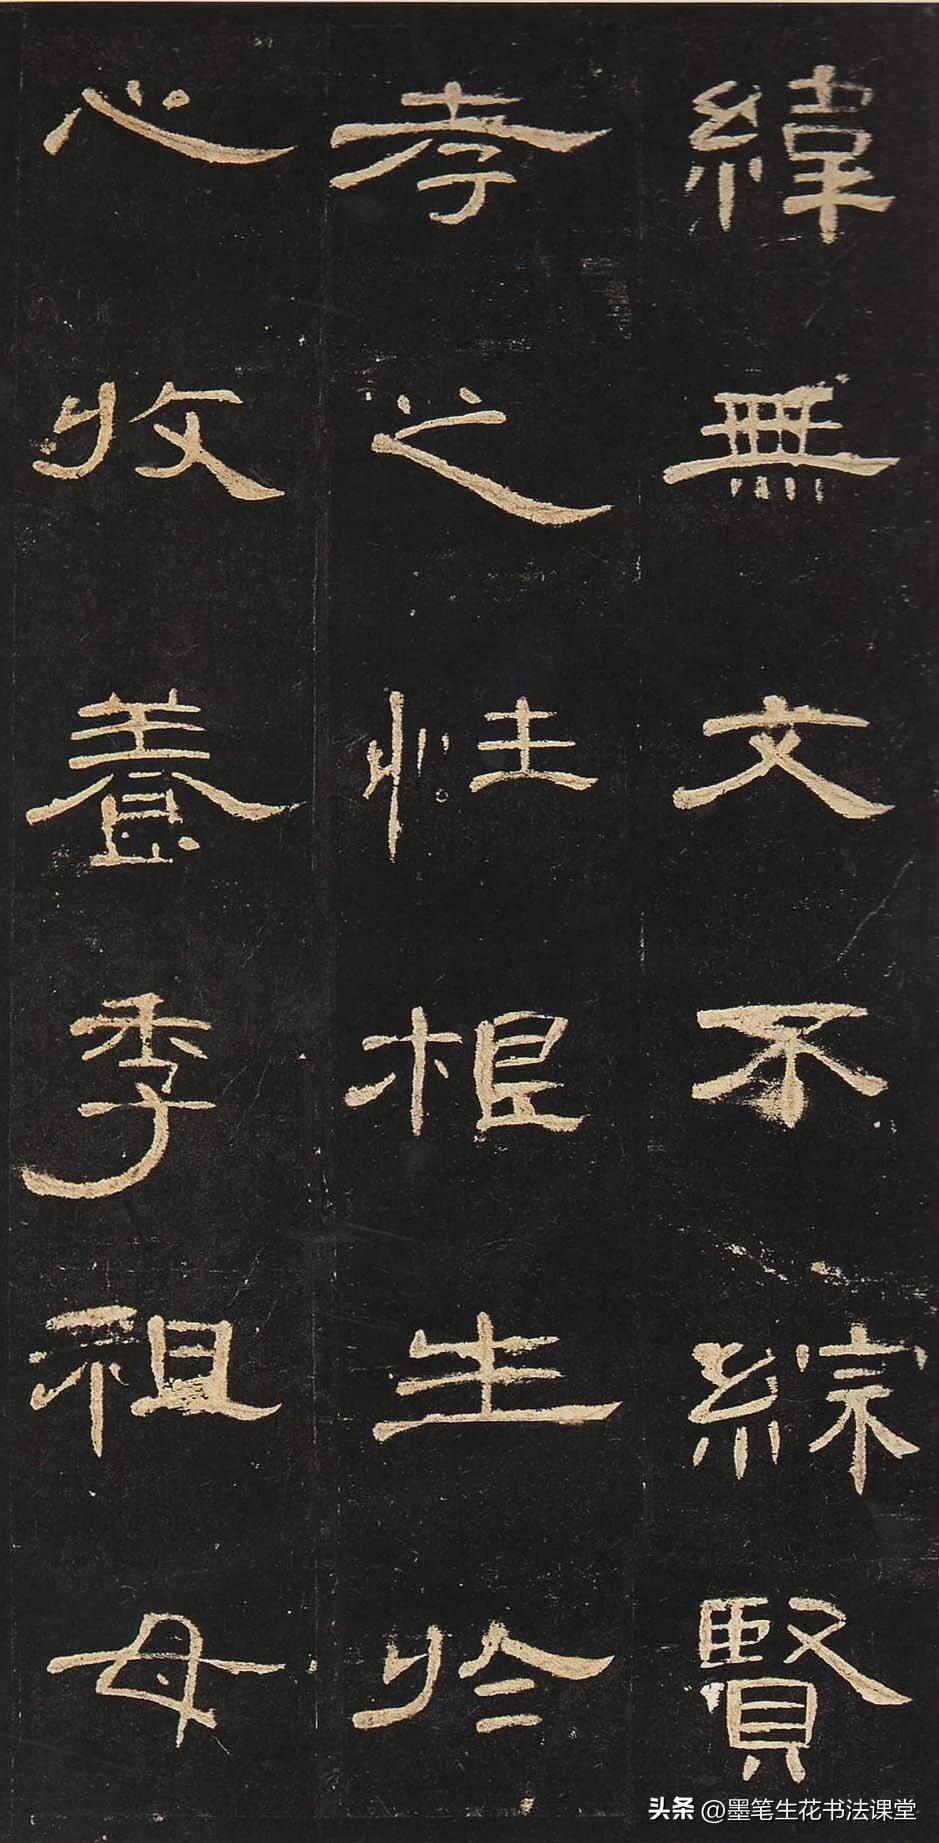 緯無文不綜賢
孝之性根生於
心收養季祖母
头条 @墨笔生花书法课堂